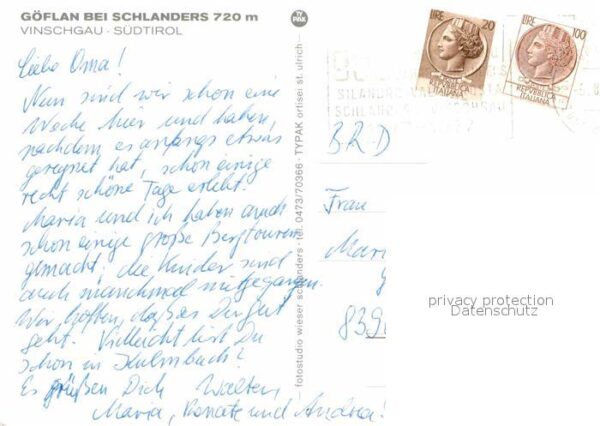 GÖFLAN BEI SCHLANDERS 720 m
VINSCHGAU · SÜDTIROL
Liebe Oma!
Nun sind wir schon eine
Woche hier und haben,
nachdem es anfangs etwas
geregnet hat, schon einige
recht schöne Tage erlebt.
Maria und ich haben auch
schon einige große Bergtouren
gemacht, die Kinder sind
auch manchmal mitgegangen.
Wir hoffen, daß es Dir gut
geht. Vielleicht bist Du
schon in Kulmbach?
Es grüßen Dich Walter,
Maria, Renate und Andrea!
TYPAK
fotostudio wieser schlanders · tel. 0473/70366 · TYPAK ortisei st. ulrich
LIRE 20
REPVBBLICA
ITALIANA
LIRE 100
REPVBBLICA
ITALIANA
SILANDRO
SCHLANDERS
B.R.D
Frau
Mari
privacy protection
Datenschutz